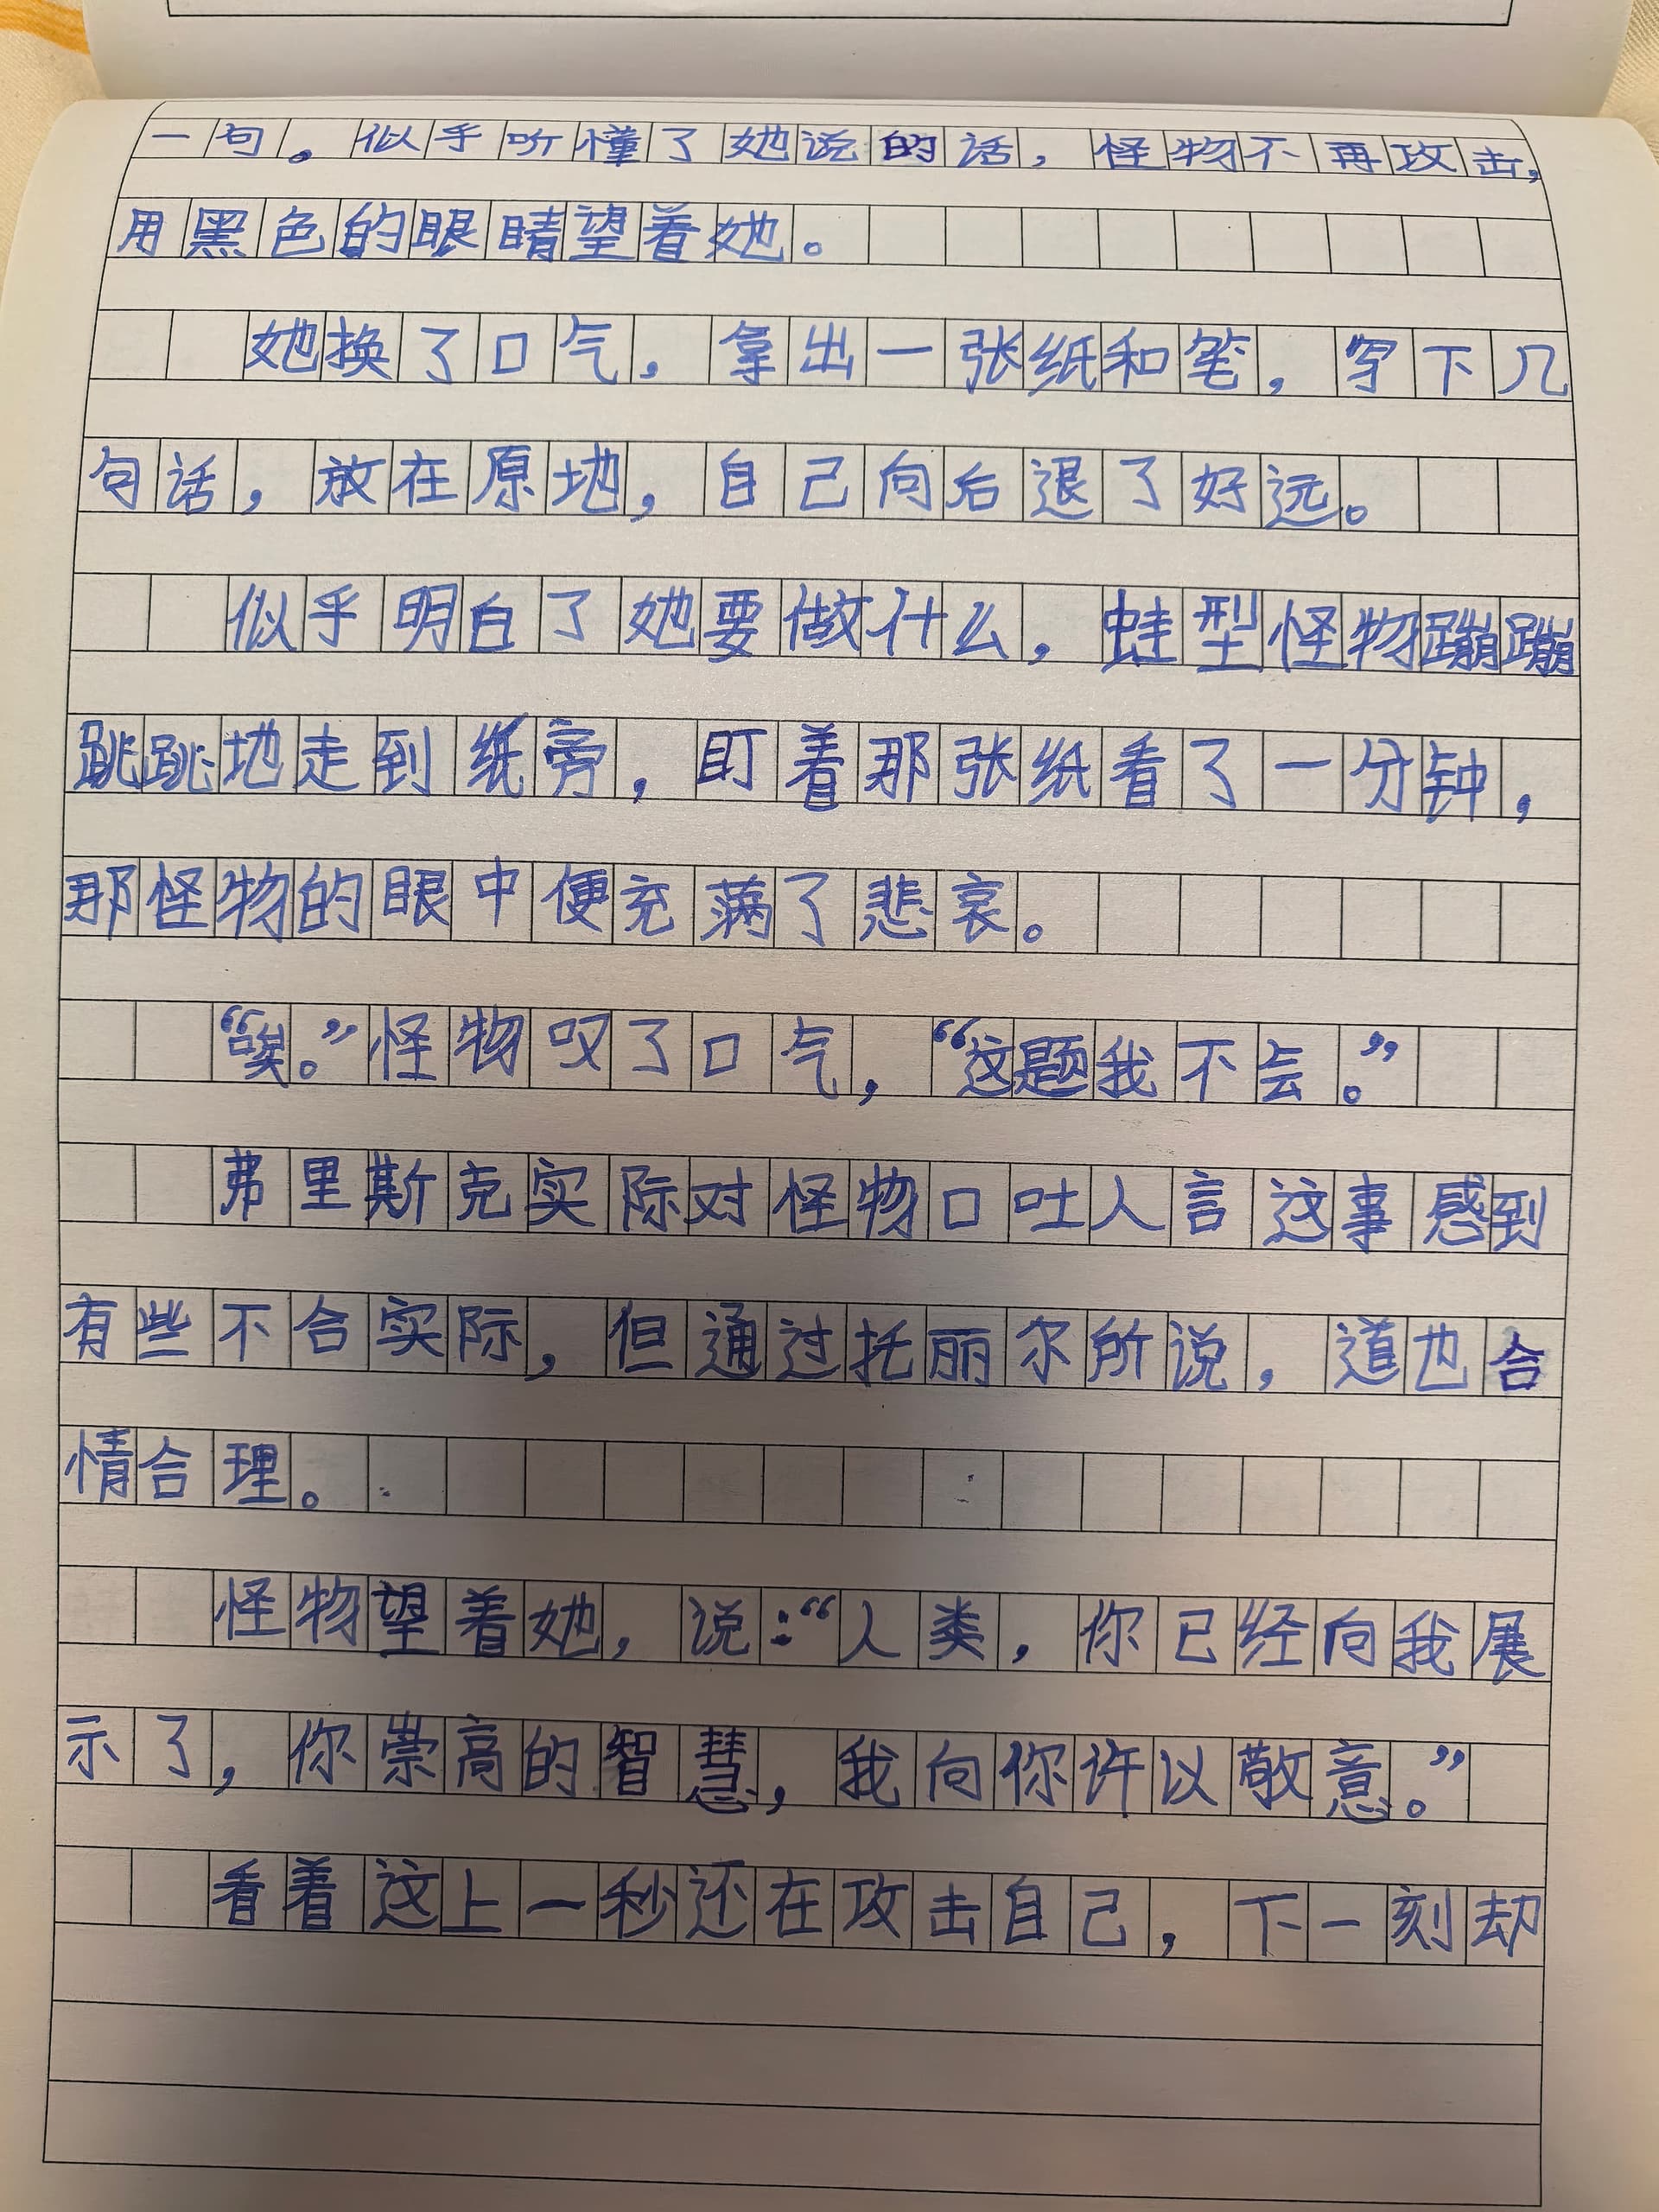 一句。似乎听懂了她说的话，怪物不再攻击，
用黑色的眼睛望着她。
她换了口气，拿出一张纸和笔，写下几
句话，放在原地，自己向后退了好远。
似乎明白了她要做什么，蛙型怪物蹦蹦
跳跳地走到纸旁，盯着那张纸看了一分钟，
那怪物的眼中便充满了悲哀。
“唉。”怪物叹了口气，“这题我不会。”
弗里斯克实际对怪物口吐人言这事感到
有些不合实际，但通过托丽尔所说，道也合
情合理。
怪物望着她，说：“人类，你已经向我展
示了，你崇高的智慧，我向你许以敬意。”
看着这上一秒还在攻击自己，下一刻却